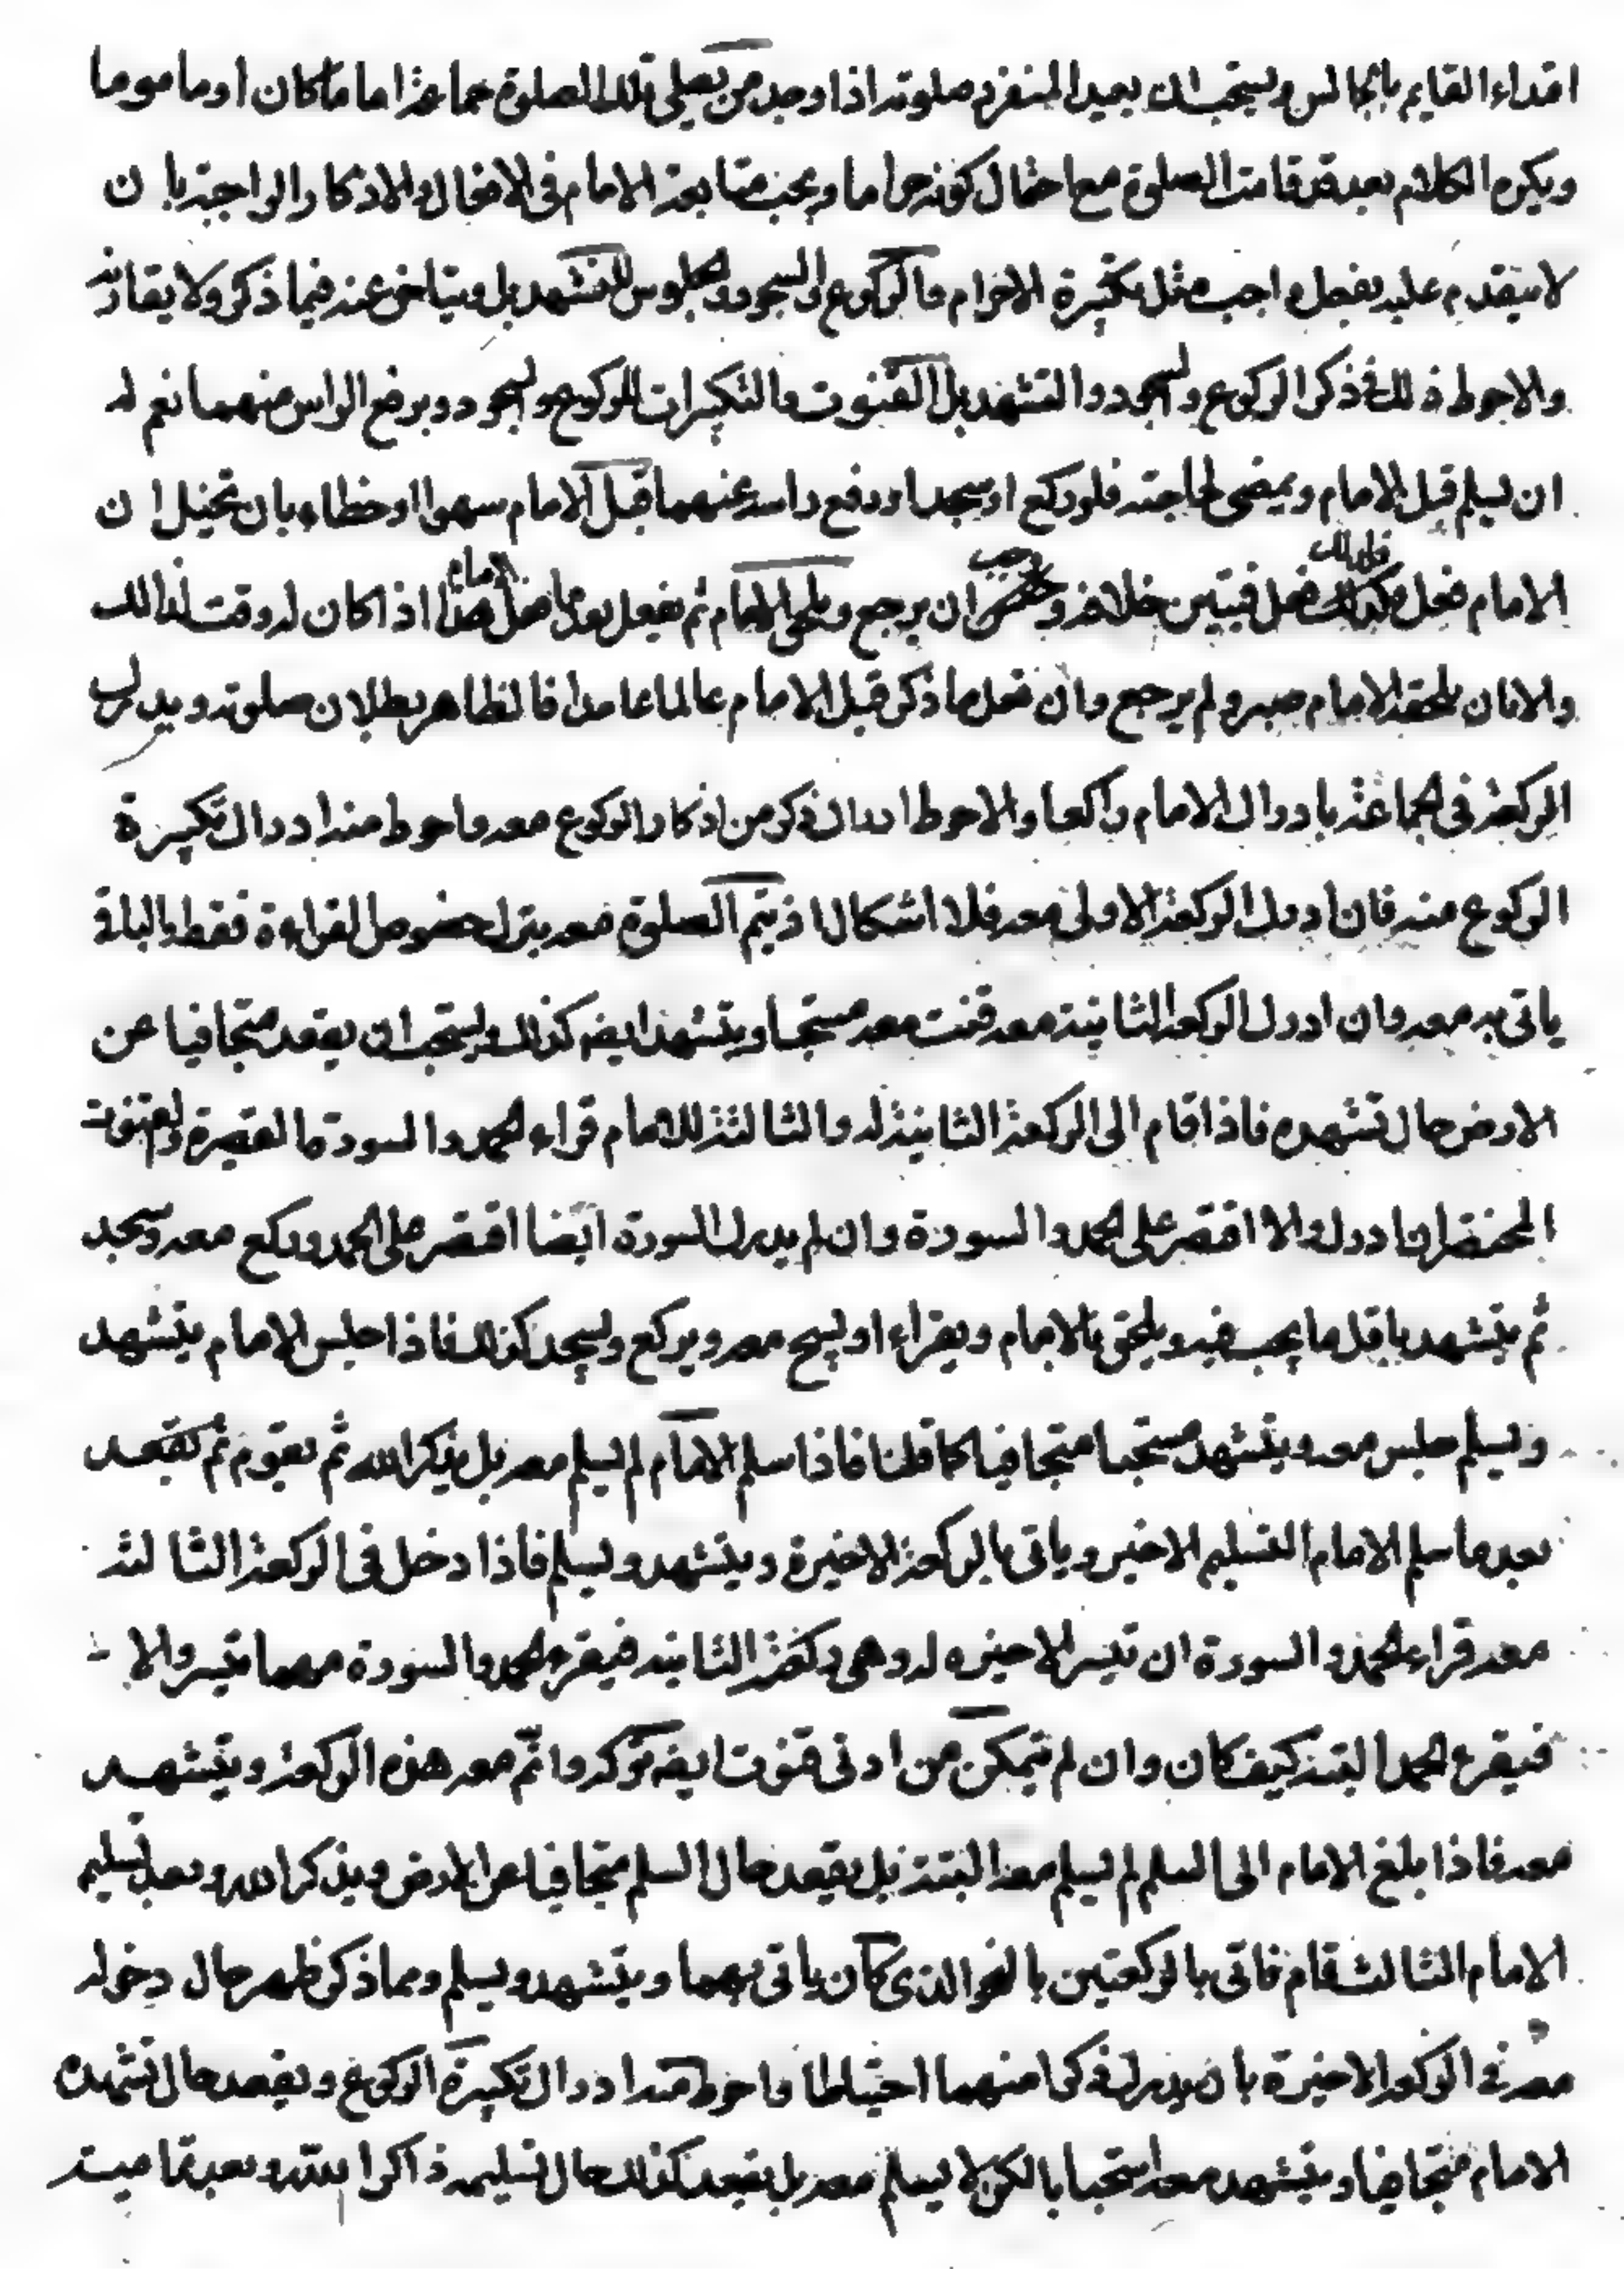 اقتداء القايم بالجالس ويستحب ان يعيد المنفرد صلوته اذا وجد من يصلى تلك الصلوة جماعة اماما كان او ماموما
ويكره الكلام بعد قد قامت الصلوة مع احتمال كونه حراما ويجب متابعة الامام فى الافعال والاذكار الواجبة بان
لا يتقدم عليه بفعل واجب مثل تكبيرة الاحرام والركوع والسجود والجلوس للتشهد بل ويتاخر عنه فيما ذكر ولا يقارنه
والاحوط ذلك فى ذكر الركوع والسجود والتشهد بل القنوت والتكبيرات للركوع والسجود وبرفع الراس منهما نعم له
ان يسلم قبل الامام ويمضى لحاجته فلو ركع او سجد او رفع راسه عنهما قبل الامام سهوا او خطاء بان تخيل ان
الامام فعل فلذلك فعل فتبين خلافه وجب ان يرجع ويلحق الامام ثم يفعل بعد ما فعل الامام هذا اذا كان له وقت لذالك
والا فان يلحقه الامام صبر ولم يرجع وان فعل ما ذكر قبل الامام عالما عامدا فالظاهر بطلان صلوته ويدرك
الركعة فى الجماعة بادراك الامام راكعا والاحوط ادراك ذكر من اذكار الركوع معه واحوط منه ادراك تكبيرة
الركوع منه فان ادرك الركعة الاولى معه فلا اشكال اذ يتم الصلوة معه يترك خصوص القراءة فقط والباقى
ياتى به معه وان ادرك الركعة الثانية معه قنت معه مستحبا ويتشهد ايضه كذلك ويستحب ان يقعد متجافيا عن
الارض حال تشهده فاذا قام الى الركعة الثانية له والثالثة للامام قراء الحمد والسورة القصيرة والقنوت
المختصر ان ادرك والا اقتصر على الحمد والسورة وان لم يدرك السورة ايضا اقتصر على الحمد وركع معه وسجد
ثم يتشهد باقل ما يجب فيه ويلحق بالامام ويقراء او يسبح معه ويركع ويسجد كذلك فاذا جلس الامام يتشهد
ويسلم جلس معه ويتشهد مستحبا متجافيا كما قلنا فاذا سلم الامام لم يسلم معه بل يذكر الله ثم يقوم ثم يقعد
بعد ما سلم الامام التسليم الاخير وياتى بالركعة الاخيرة ويتشهد ويسلم فاذا دخل فى الركعة الثالثة
معه قراء الحمد والسورة ان تيسر الاخيره له وهى ركعة الثانيه فيقرء الحمد والسورة مهما تيسر والا
فيقرء الحمد البتة كيف كان وان لم يتمكن من ادنى قنوت ايضه تركه واتم معه هذه الركعة ويتشهد
معه فاذا بلغ الامام الى السلم لم يسلم معه البتة بل يقعد حال السلم متجافيا عن الارض ويذكر الله وبعد تسليم
الامام الثالث قام فاتى بالركعتين بالنحو الذى كان ياتى بهما ويتشهد ويسلم ومما ذكر ظهر حال دخوله
معه فى الركعة الاخيرة بان يدرك ذكرا منهما احتياطا واحوط منه ادراك تكبيرة الركوع ويقعد حال تشهده
الامام متجافيا ويتشهد معه استحبابا لكن لا يسلم معه بل يقعد كذلك حال تسليمه ذاكرا لله وبعد تماميته